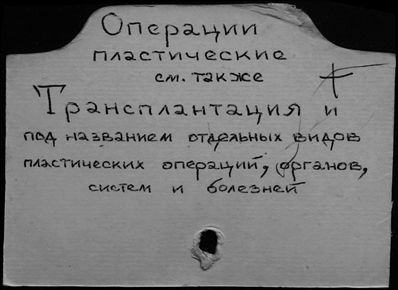 Операции
пластические
см. также
Трансплантация и
под названием отдельных видов
пластических операций, органов,
систем и болезней